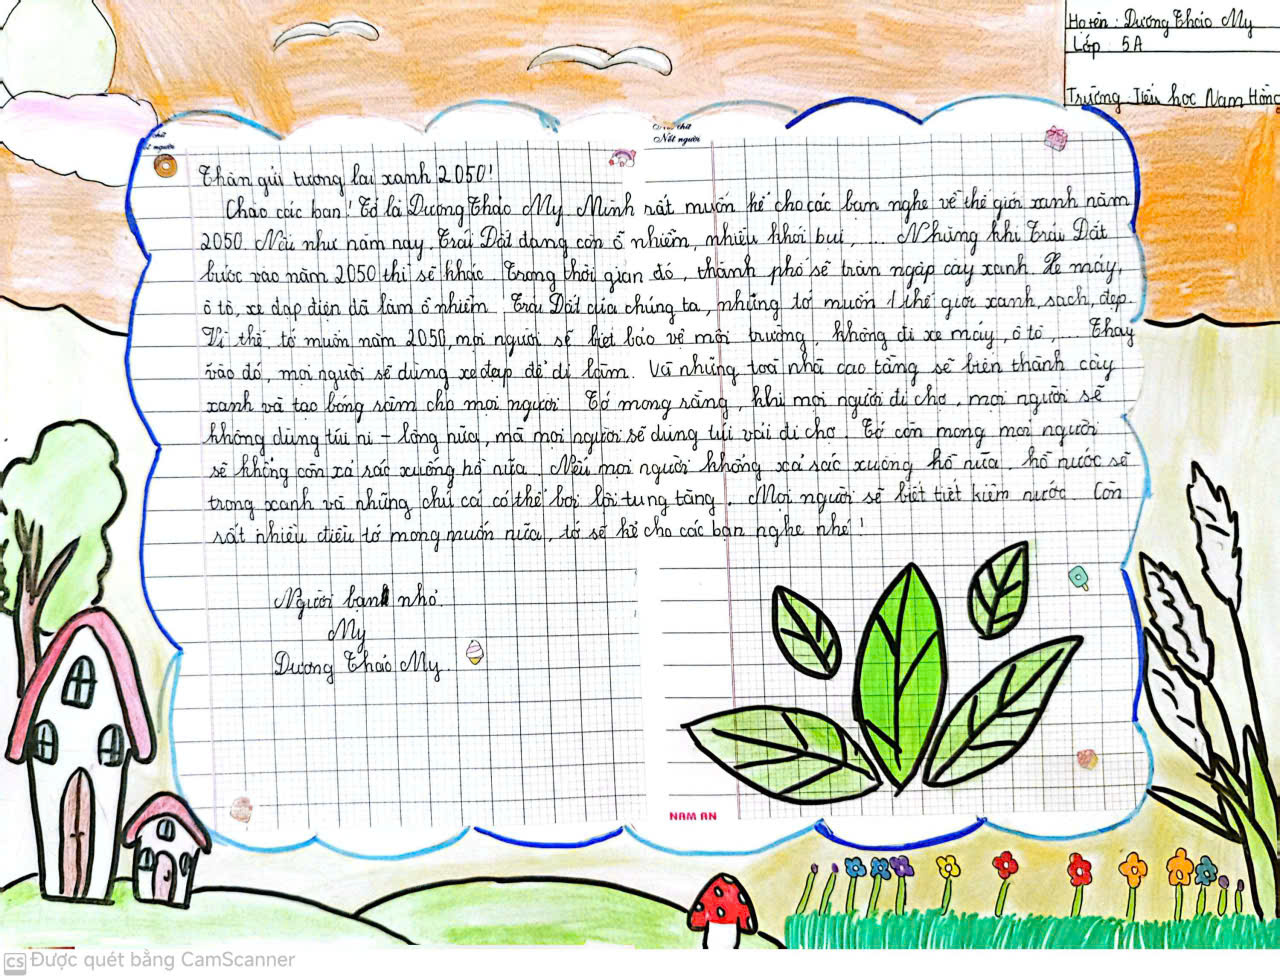 Họ tên : Dương Thảo My
Lớp : 5A
Trường : Tiểu học Nam Hồng
Nét chữ
Nết người
Thân gửi tương lai xanh 2050!
Chào các bạn! Tớ là Dương Thảo My. Mình rất muốn kể cho các bạn nghe về thế giới xanh năm
2050. Nếu như năm nay, Trái Đất đang còn ô nhiễm, nhiều khói bụi, ... Nhưng khi Trái Đất
bước vào năm 2050 thì sẽ khác. Trong thời gian đó, thành phố sẽ tràn ngập cây xanh. Xe máy,
ô tô, xe đạp điện đã làm ô nhiễm Trái Đất của chúng ta, nhưng tớ muốn 1 thế giới xanh, sạch, đẹp.
Vì thế, tớ muốn năm 2050, mọi người sẽ biết bảo vệ môi trường, không đi xe máy, ô tô, ... Thay
vào đó, mọi người sẽ dùng xe đạp để đi làm. Và những toà nhà cao tầng sẽ biến thành cây
xanh và tạo bóng râm cho mọi người. Tớ mong rằng, khi mọi người đi chợ, mọi người sẽ
không dùng túi ni - lông nữa, mà mọi người sẽ dùng túi vải đi chợ. Tớ còn mong mọi người
sẽ không còn xả rác xuống hồ nữa. Nếu mọi người không xả rác xuống hồ nữa, hồ nước sẽ
trong xanh và những chú cá có thể bơi lội tung tăng. Mọi người sẽ biết tiết kiệm nước. Còn
rất nhiều điều tớ mong muốn nữa, tớ sẽ kể cho các bạn nghe nhé!
Người bạn nhỏ.
My
Dương Thảo My.
NAM AN
CS Được quét bằng CamScanner